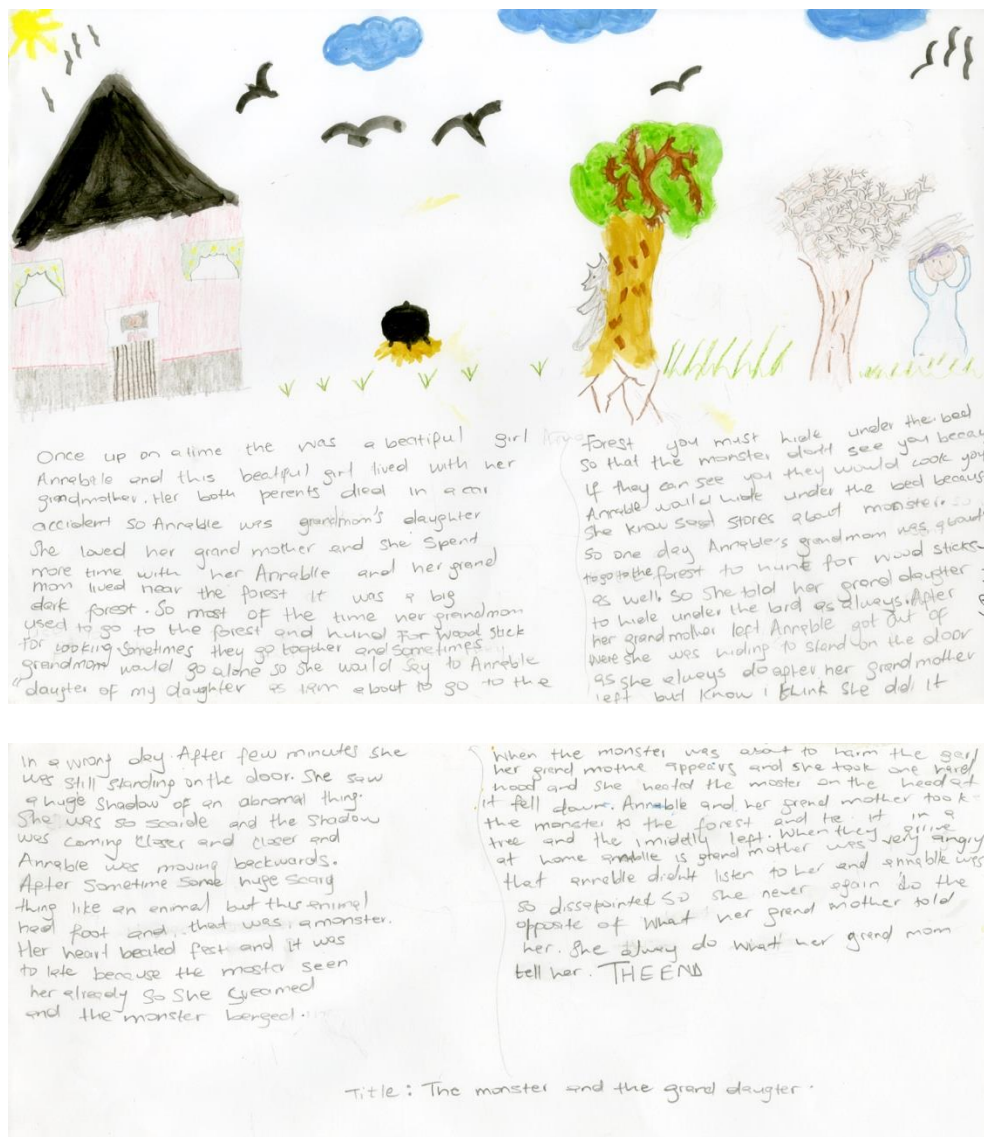 Once up on a time the was a beatiful girl
Annable and this beatiful girl lived with her
grandmother. Her both parents died in a car
accident so Annable was grandmom's daughter
She loved her grand mother and she spend
more time with her Annable and her grand
mom lived near the forest it was a big
dark forest. So most of the time her grandmom
used to go to the forest and hund for wood stick
for cooking sometimes they go together and sometimes
grandmom would go alone so she would say to Annable
"daugter of my daughter as I am about to go to the
Forest you must hide under the bed
so that the monster don't see you becau
if they can see you they would cook you
Annable would hide under the bed because
she know sead stores about monster. so
so one day Annable's grandmom was about
to go to the forest to hunt for wood sticks
as well. so she told her grand daugter
to hide under the bed as always. After
her grandmother left Annable got out of
were she was hiding to stand on the door
as she always do after her grandmother
left but know i think she did it
in a wrong day. After few minutes she
was still standing on the door. She saw
a huge shadow of an abnomal thing.
She was so scarde and the shadow
was coming closer and closer and
Annable was moving backwards.
After sometime some huge scary
thing like an animal but this animal
had foot and that was a monster.
Her heart beated fast and it was
to late because the moster seen
her already so she screamed
and the monster berged.
When the monster was about to harm the gerl
her grand mothe appears and she took one hard
hood and she heated the moster on the head at
it fell down. Annable and her grand mother took
the monster to the forest and tie it in a
tree and the imiddly left. When they arrive
at home annable is grand mother was very angry
that annable didn't listen to her and annable was
so dissapointed so she never again do the
opposite of what her grand mother told
her. She alway do what her grand mom
tell her. THE END
Title: The monster and the grand daugter.